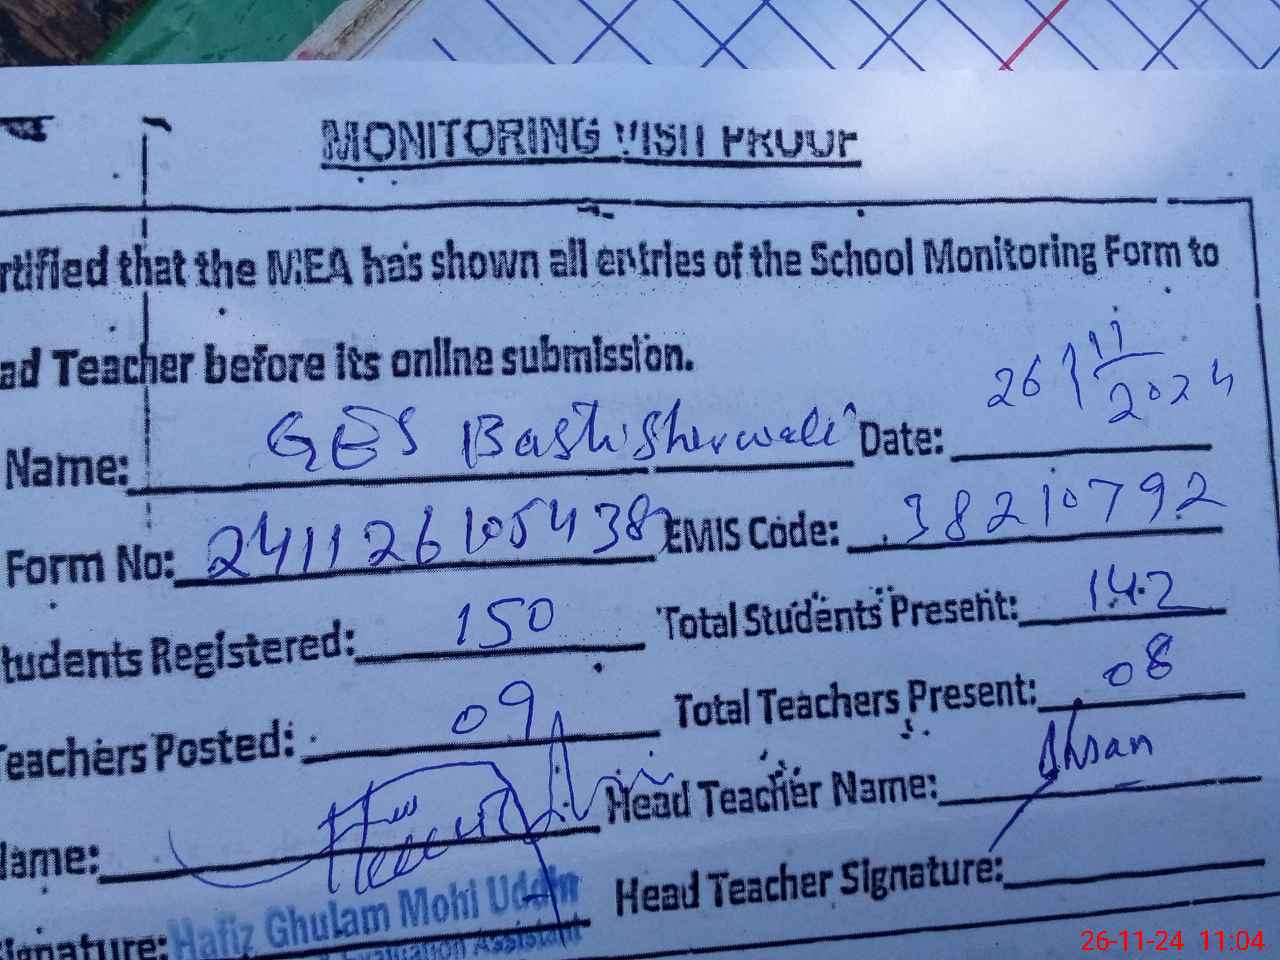 MONITORING VISIT PROOF
rtified that the MEA has shown all entries of the School Monitoring Form to
ad Teacher before its online submission.
Name: GES Basti Sherwali Date: 26/11/2024
Form No: 241126105438 EMIS Code: 38210792
tudents Registered: 150 Total Students Present: 142
Teachers Posted: 09 Total Teachers Present: 08
Name: Head Teacher Name: Ahsan
Signature: Hafiz Ghulam Mohi Uddin Head Teacher Signature:
Evaluation Assistant
26-11-24 11:04